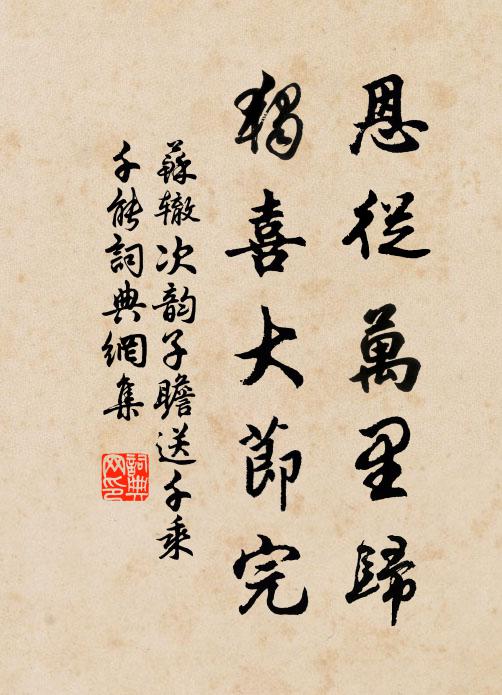 恩從萬里歸
獨喜大節完
蘇辙次韵子瞻送千乘
千能詞典網集
詞典网印